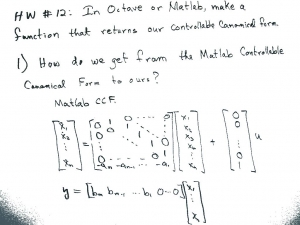 HW #12: In Octave or Matlab, make a
function that returns our controllable Canonical form.
1) How do we get from the Matlab Controllable
Canonical Form to ours?
Matlab CCF.
[ẋ₁ ẋ₂ ⋮ ẋₙ] = [0 1 0 ⋯ 0; 0 0 1 ⋯; ⋮ 1 0; 0 1; -aₙ -aₙ₋₁ ⋯ -a₁] [x₁ x₂ x₃ ⋮ xₙ] + [0 0 ⋮ 0 1] u
y = [bₘ bₘ₋₁ ⋯ b₁ 0⋯0] [x₁ ⋮ xₙ]